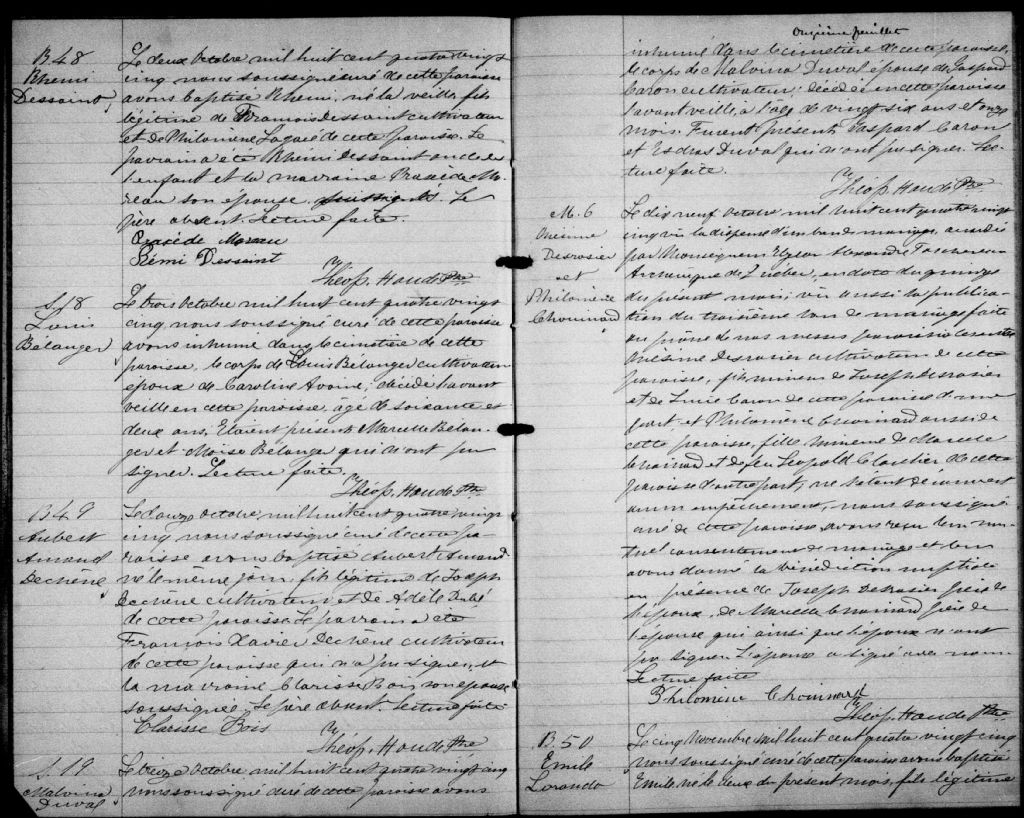 B.48
Rhemi
Dessaint
Le deux Octobre mil huit cent quatre vingt
cinq nous soussigné curé de cette paroisse
avons baptisé Rhemi, né la veille, fils
légitime de François Dessaint cultivateur
et de Philomène Lagacé de cette paroisse. Le
parrain a été Rhémi Dessaint oncle de
l'enfant et la marraine Praxède Mo-
reau son épouse, soussignés. Le
père absent. Lecture faite.
Praxède Moreau
Rémi Dessaint
Théop. Houde Ptre
S. 18
Louis
Bélanger
Le trois Octobre mil huit cent quatre vingt
cinq, nous soussigné curé de cette paroisse
avons inhumé dans le cimetière de cette
paroisse, le corps de Louis Bélanger cultivateur
époux de Caroline Avoine, décédé l'avant
veille en cette paroisse, âgé de soixante et
deux ans. Etaient présents Marcelle Bélan-
ger et Moïse Bélanger qui n'ont pu
signer. Lecture faite.
Théop. Houde Ptre
B.49
Aubert
Amand
Dechêne
Le douze Octobre mil huit cent quatre vingt
cinq nous soussigné curé de cette pa
roisse avons baptisé Aubert Amand
né le même jour, fils légitime de Joseph
Dechêne cultivateur et de Adèle Dubé
de cette paroisse. Le parrain a été
François Xavier Dechêne cultivateur
de cette paroisse qui n'a pu signer, et
la marraine Clarisse Bois son épouse
soussignée. Le père absent. Lecture faite
Clarisse Bois
Théop. Houde Ptre
S. 19
Malvina
Duval
Le treize Octobre mil huit cent quatre vingt cinq
nous soussigné curé de cette paroisse avons
Onzième feuillet
inhumé dans le cimetière de cette paroisse,
le corps de Malvina Duval épouse de Gaspard
Caron cultivateur, décédée en cette paroisse
l'avant veille, à l'âge de vingt six ans et onze
mois. Furent présents Gaspard Caron
et Esdras Duval qui n'ont pu signer. Lec-
ture faite.
Théop. Houde Ptre
M. 6
Onésime
Desrosier
et
Philomène
Chouinard
Le dix neuf Octobre mil huit cent quatre vingt
cinq vu la dispense d'un ban de mariage, accordée
par Monseigneur Elzéar Alexandre Taschereau
Archevêque de Québec, en date du quinze
du présent mois; vu aussi la publica-
tion du troisième ban de mariage faite
au prône de nos messes paroissiales entre
Onésime Desrosier cultivateur de cette
paroisse, fils mineur de Joseph Desrosier
et de Luce Caron de cette paroisse d'une
part et Philomène Chouinard aussi de
cette paroisse, fille mineure de Marcelle
Chouinard et de feu Léopold Cloutier de cette
paroisse d'autre part; ne s'étant découvert
aucun empêchement, nous soussigné
curé de cette paroisse avons reçu leur mu-
tuel consentement de mariage et leur
avons donné la bénédiction nuptiale
en présence de Joseph Desrosier père de
l'époux, de Marcelle Chouinard père de
l'épouse qui ainsi que l'époux n'ont
pu signer. L'épouse a signé avec nous.
Lecture faite
Philomène Chouinard
Théop. Houde Ptre
B. 50
Emile
Lorando
Le cinq Novembre mil huit cent quatre vingt cinq
nous soussigné curé de cette paroisse avons baptisé
Emile, né le deux du présent mois, fils légitime